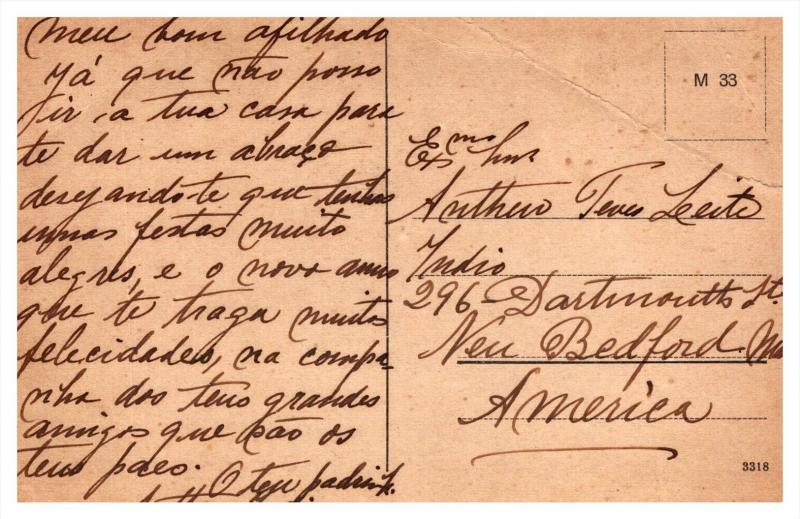 Meu bom afilhado
Já que não posso
ir, a tua casa para
te dar um abraço
desejando-te que tenhas
umas festas muito
alegres, e o novo anno
que te traga muitas
felecidades, na compa-
nha dos teus grandes
amigos que são os
teus paes.
O teu
M 33
Exmo Snr
Anthero Teves Leite
Indio
296 Dartmouth St.
New Bedford
America
3318